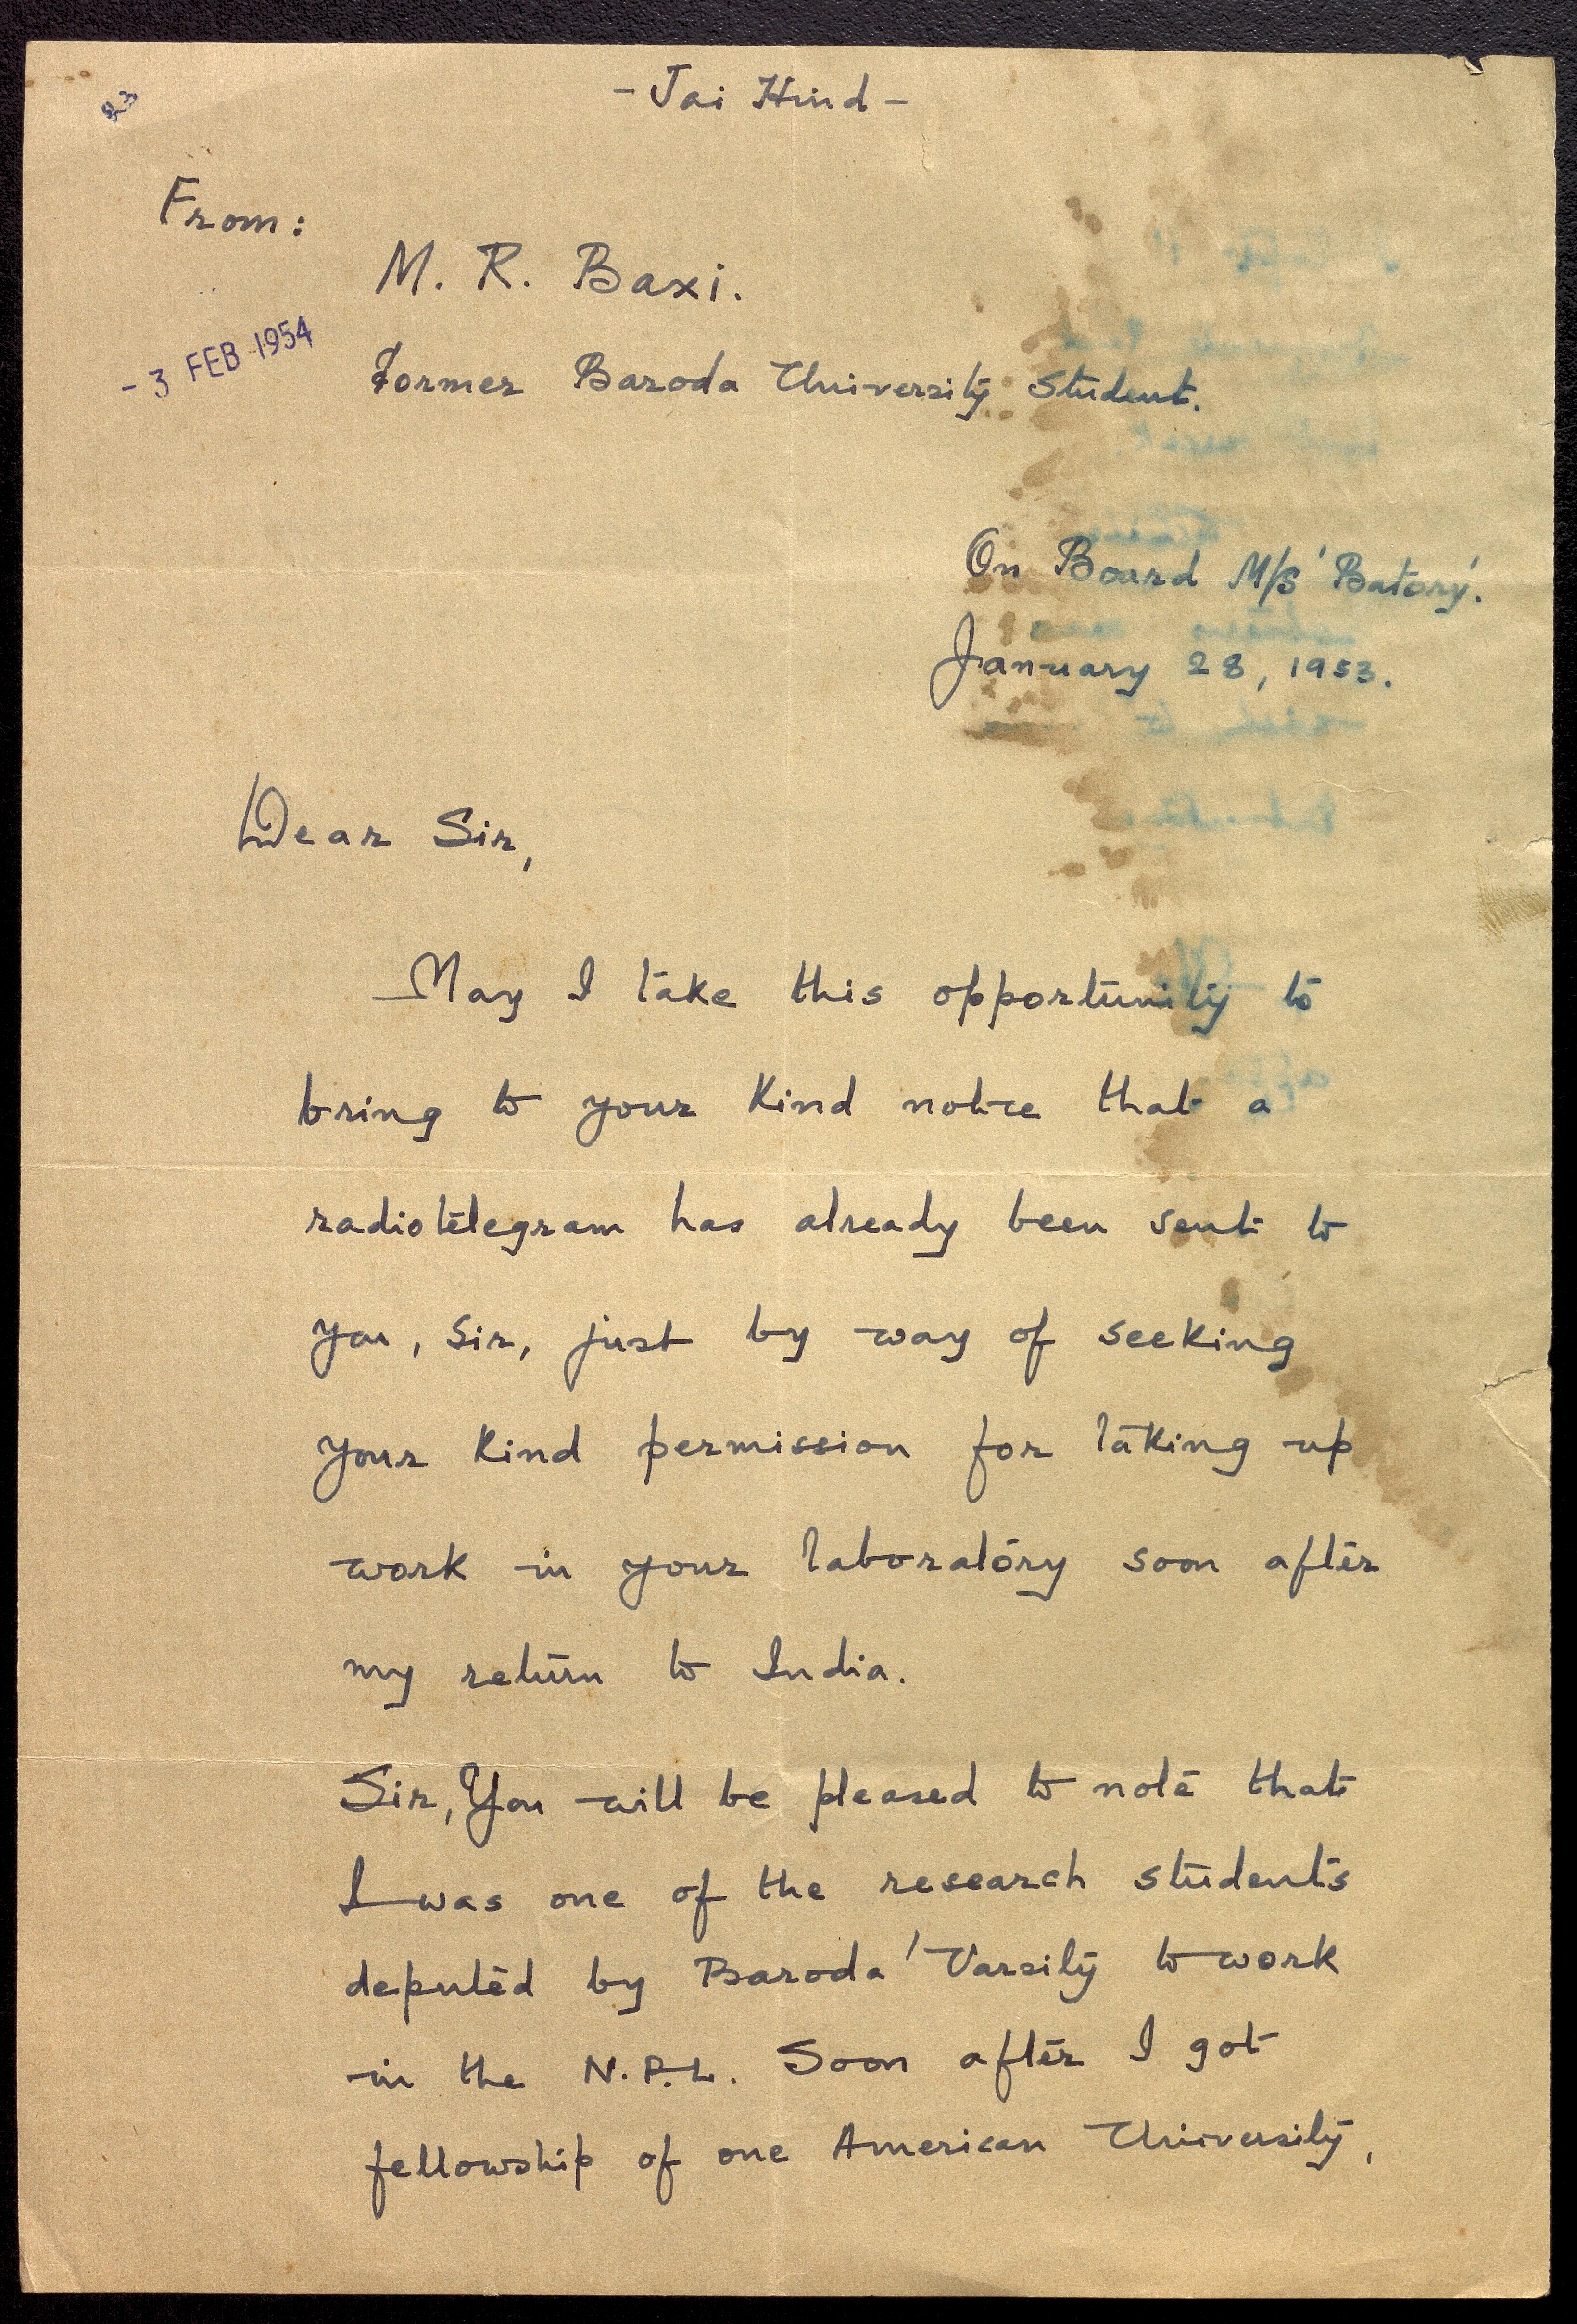 - Jai Hind -
From:
M. R. Baxi.
- 3 FEB 1954
Former Baroda University student.
On Board M/S 'Batory'.
January 28, 1953.
Dear Sir,
May I take this opportunity to
bring to your kind notice that a
radiotelegram has already been sent to
you, Sir, just by way of seeking
your kind permission for taking up
work in your laboratory soon after
my return to India.
Sir, You will be pleased to note that
I was one of the research students
deputed by Baroda 'Varsity to work
in the N.P.L. Soon after I got
fellowship of one American University,